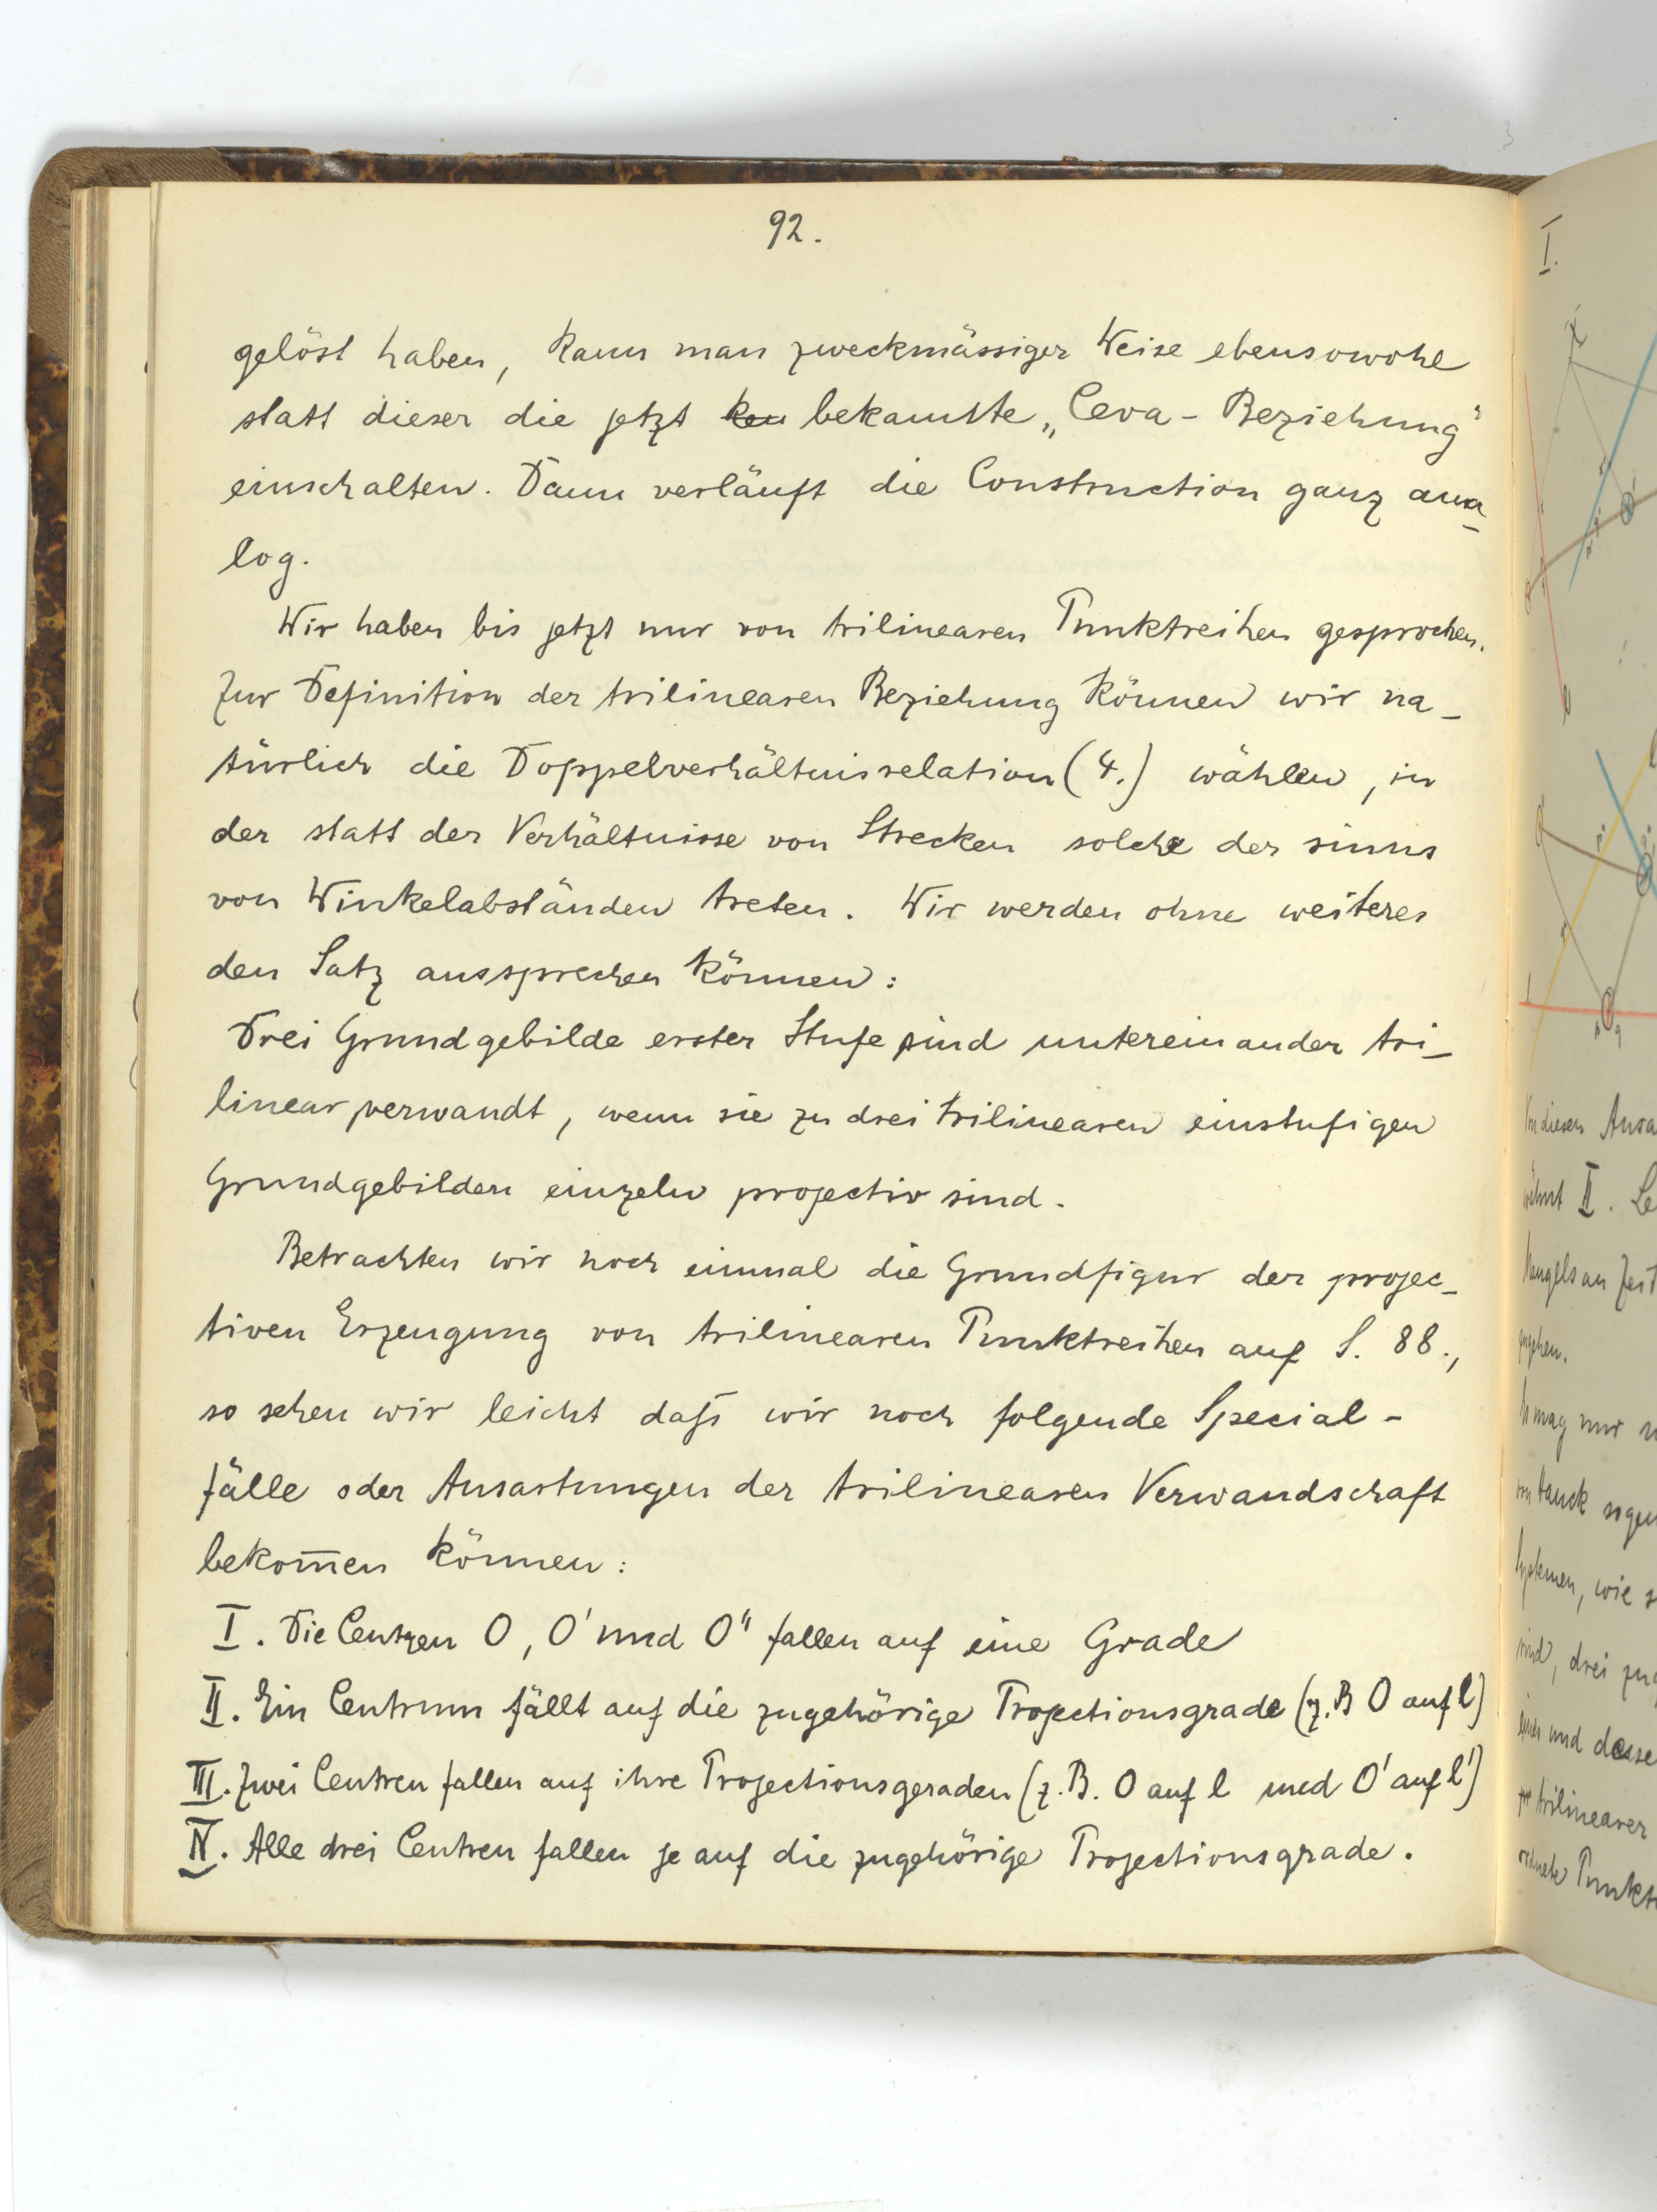 92.
gelöst haben, kann man zweckmässiger Weise ebensowohl
statt dieser die jetzt ken bekannte „Ceva-Beziehung"
einschalten. Dann verläuft die Construction ganz ana-
log.
Wir haben bis jetzt nur von trilinearen Punktreihen gesprochen.
Zur Definition der trilinearen Beziehung können wir na-
türlich die Doppelverhältnisrelation (4.) wählen, in
der statt der Verhältnisse von Strecken solche der sinus
von Winkelabständen treten. Wir werden ohne weiteres
den Satz aussprechen können:
Drei Grundgebilde erster Stufe sind untereinander tri-
linear verwandt, wenn sie zu drei trilinearen einstufigen
Grundgebilden einzeln projectiv sind.
Betrachten wir noch einmal die Grundfigur der projec-
tiven Erzeugung von trilinearen Punktreihen auf S. 88.,
so sehen wir leicht daß wir noch folgende Special-
fälle oder Ausartungen der trilinearen Verwandschaft
bekom̅en können:
I. Die Centren O, O' und O'' fallen auf eine Grade
II. Ein Centrum fällt auf die zugehörige Projectionsgrade (z.B O auf l)
III. Zwei Centren fallen auf ihre Projectionsgeraden (z.B. O auf l und O' auf l')
IV. Alle drei Centren fallen je auf die zugehörige Projectionsgrade.
I.
II. Le
mag nur
wie
drei
und desse
trilinearer
Punkt